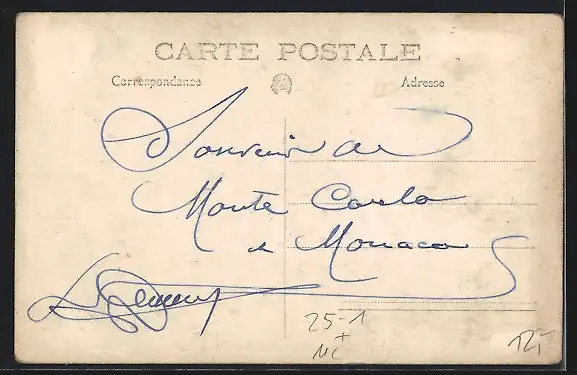 CARTE POSTALE
Correspondance Adresse
Souvenir de
Monte Carlo
de Monaco
25-1
+
MC
12,-